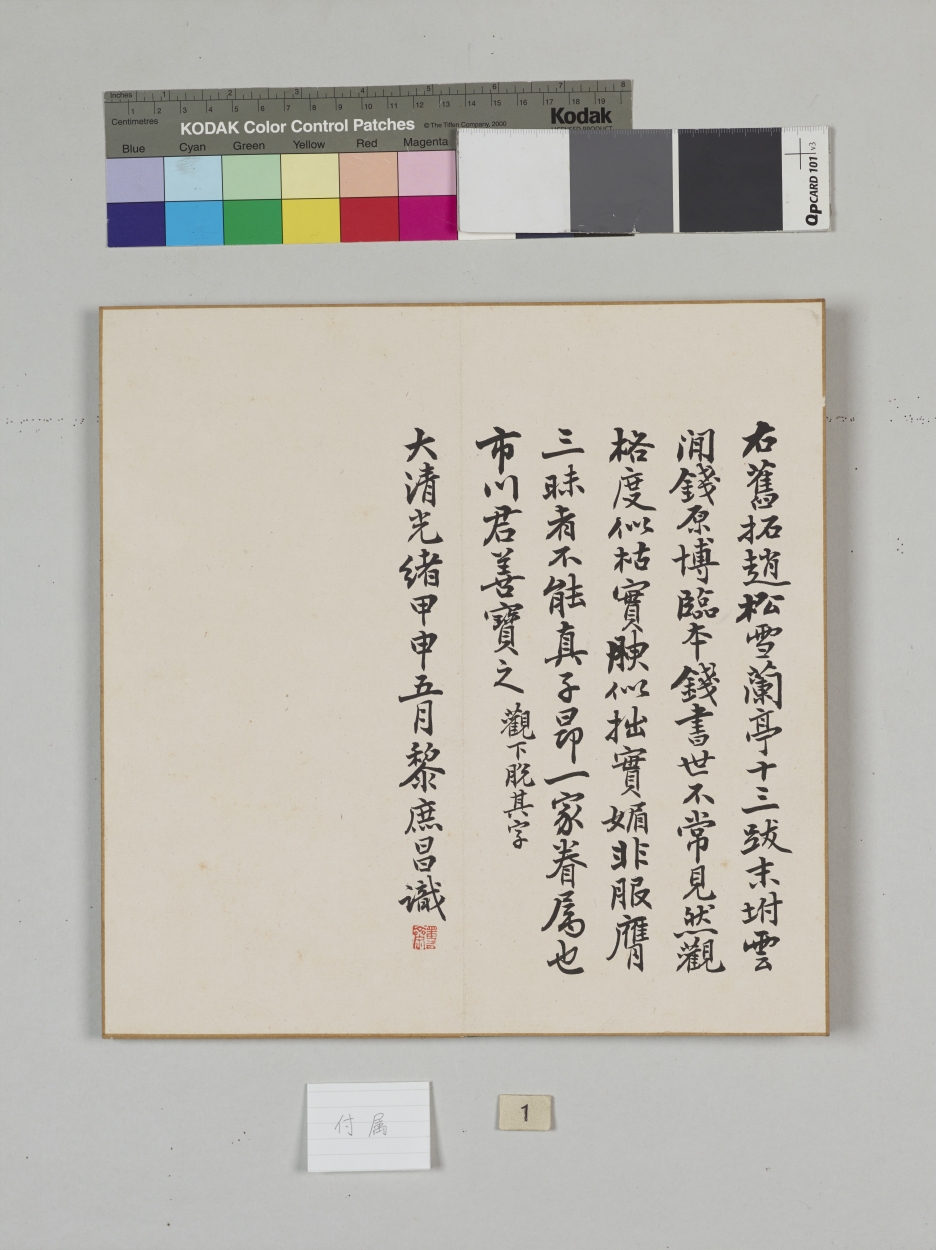 Inches 1 2 3 4 5 6 7 8
Centimetres 1 2 3 4 5 6 7 8 9 10 11 12 13 14 15 16 17 18 19
KODAK Color Control Patches © The Tiffen Company, 2000 Kodak
LICENSED PRODUCT
Blue Cyan Green Yellow Red Magenta
QPCARD 101 v3
右舊拓趙松雪蘭亭十三跋末坿雲
間錢原博臨本錢書世不常見然觀
格度似枯實腴似拙實媚非服膺
三昧者不能真子昂一家眷属也
市川君善寶之 觀下脫其字
大清光緒甲申五月黎庶昌識
付属
1